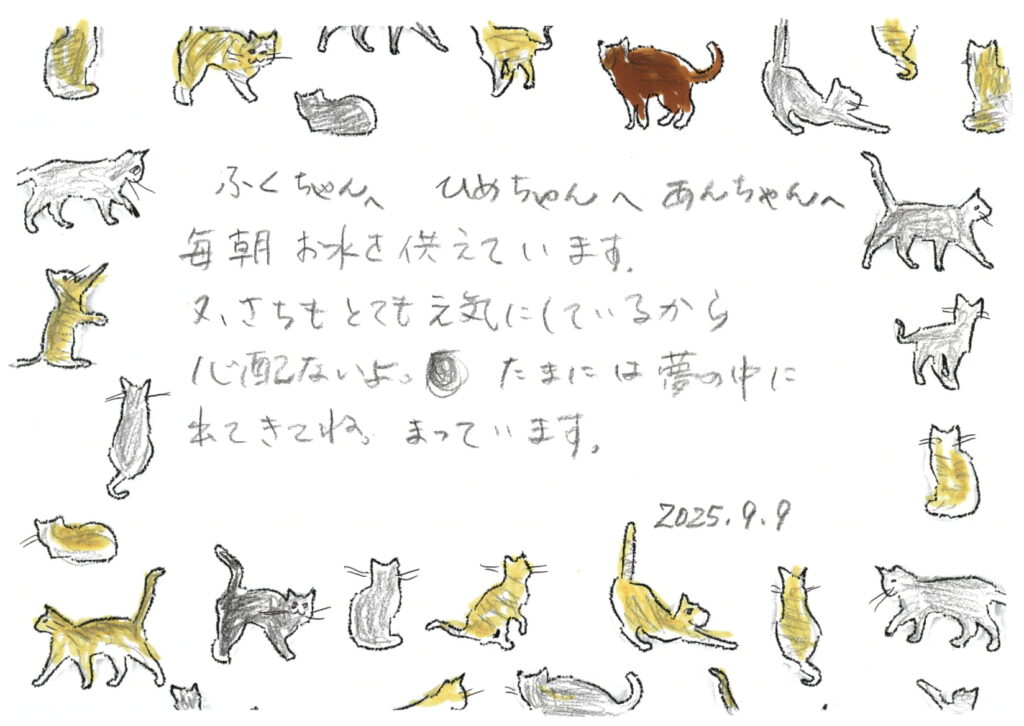 ふくちゃんへ ひめちゃんへ あんちゃんへ
毎朝お水を供えています。
又、さちもとても元気にしているから
心配ないよ。 たまには夢の中に
出てきてね。まっています。
2025.9.9